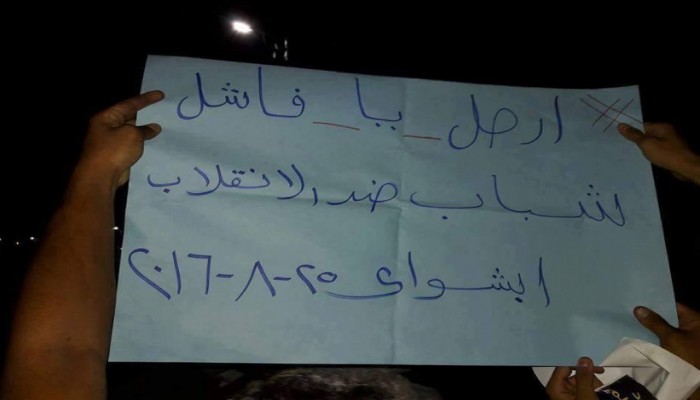 # ارحل_يا_فاشل
شباب ضد الانقلاب
ابشواى ٢٥-٨-٢٠١٦